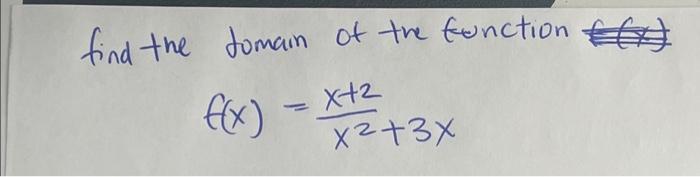 find the domain of the function
f(x) = x+2 / x²+3x